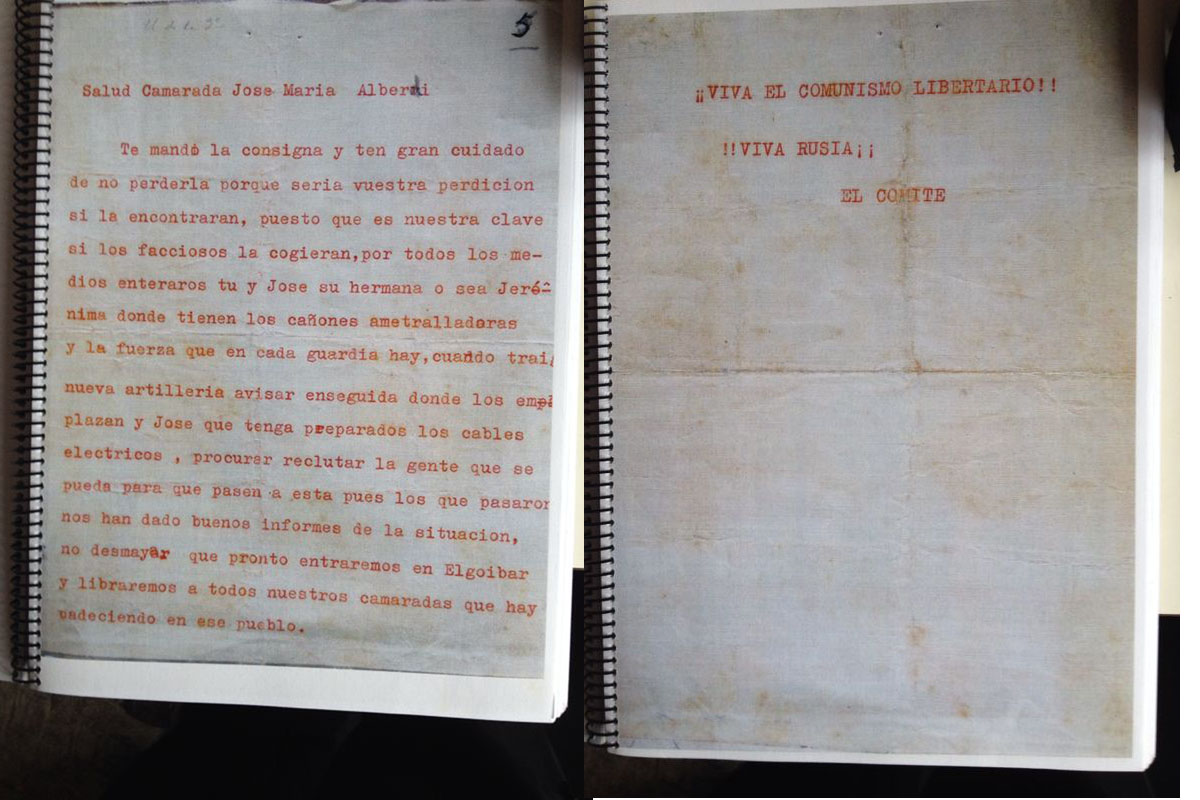 5
Salud Camarada Jose Maria Alberdi
Te mando la consigna y ten gran cuidado
de no perderla porque seria vuestra perdicion
si la encontraran, puesto que es nuestra clave
si los facciosos la cogieran,por todos los me-
dios enteraros tu y Jose su hermana o sea Jeró-
nima donde tienen los cañones ametralladoras
y la fuerza que en cada guardia hay,cuando trai
nueva artilleria avisar enseguida donde los em
plazan y Jose que tenga preparados los cables
electricos , procurar reclutar la gente que se
pueda para que pasen a esta pues los que pasaron
nos han dado buenos informes de la situacion,
no desmayar que pronto entraremos en Elgoibar
y libraremos a todos nuestros camaradas que hay
padeciendo en ese pueblo.
¡¡VIVA EL COMUNISMO LIBERTARIO!!
!!VIVA RUSIA¡¡
EL COMITE